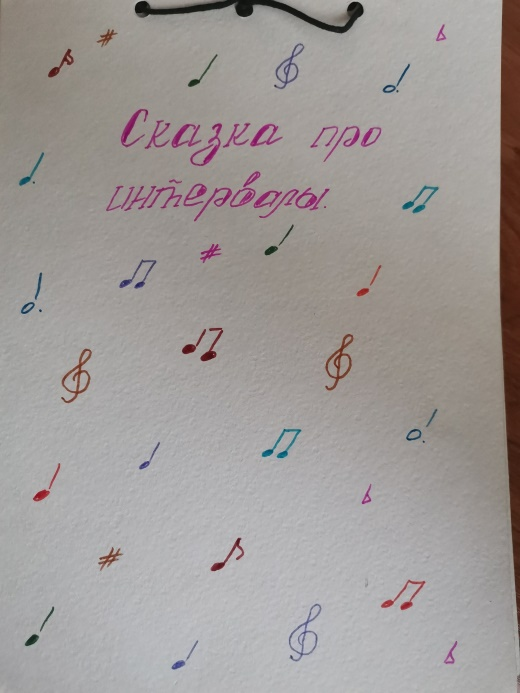 Сказка про
интервалы.